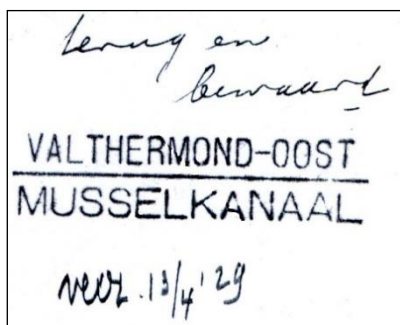 terug en
bewaard
VALTHERMOND-OOST
MUSSELKANAAL
13/4 '29